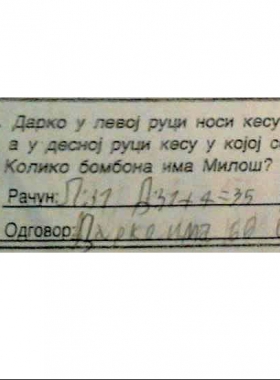 Дарко у левој руци носи кесу
а у десној руци кесу у којој
Колико бомбона има Милош?
Рачун: 31+4=35
Одговор: Дарко има